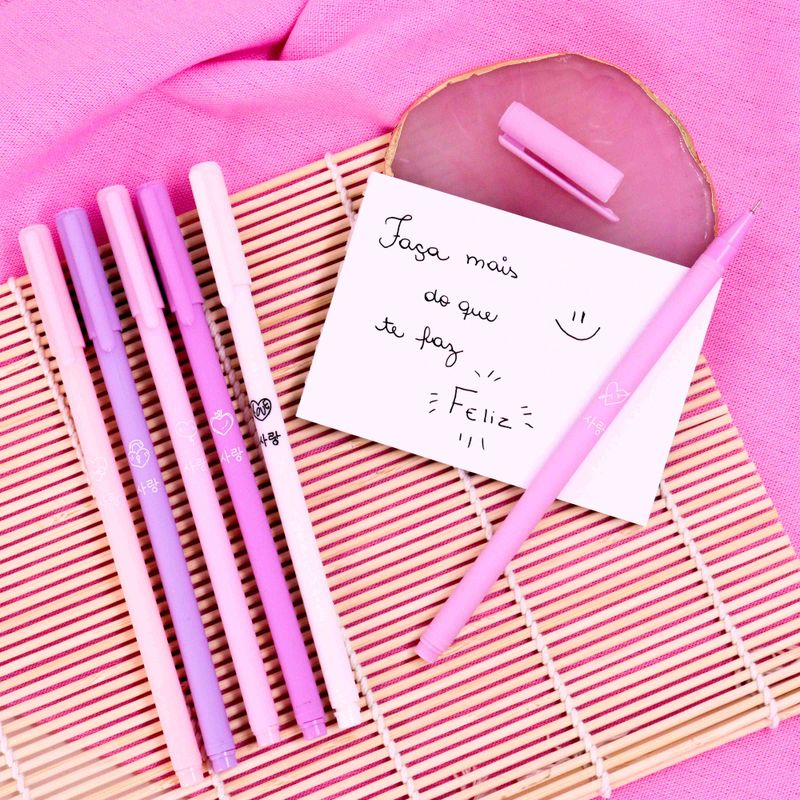 Faça mais
do que
te faz
Feliz
사랑
사랑
사랑
사랑
LOVE
사랑
사랑